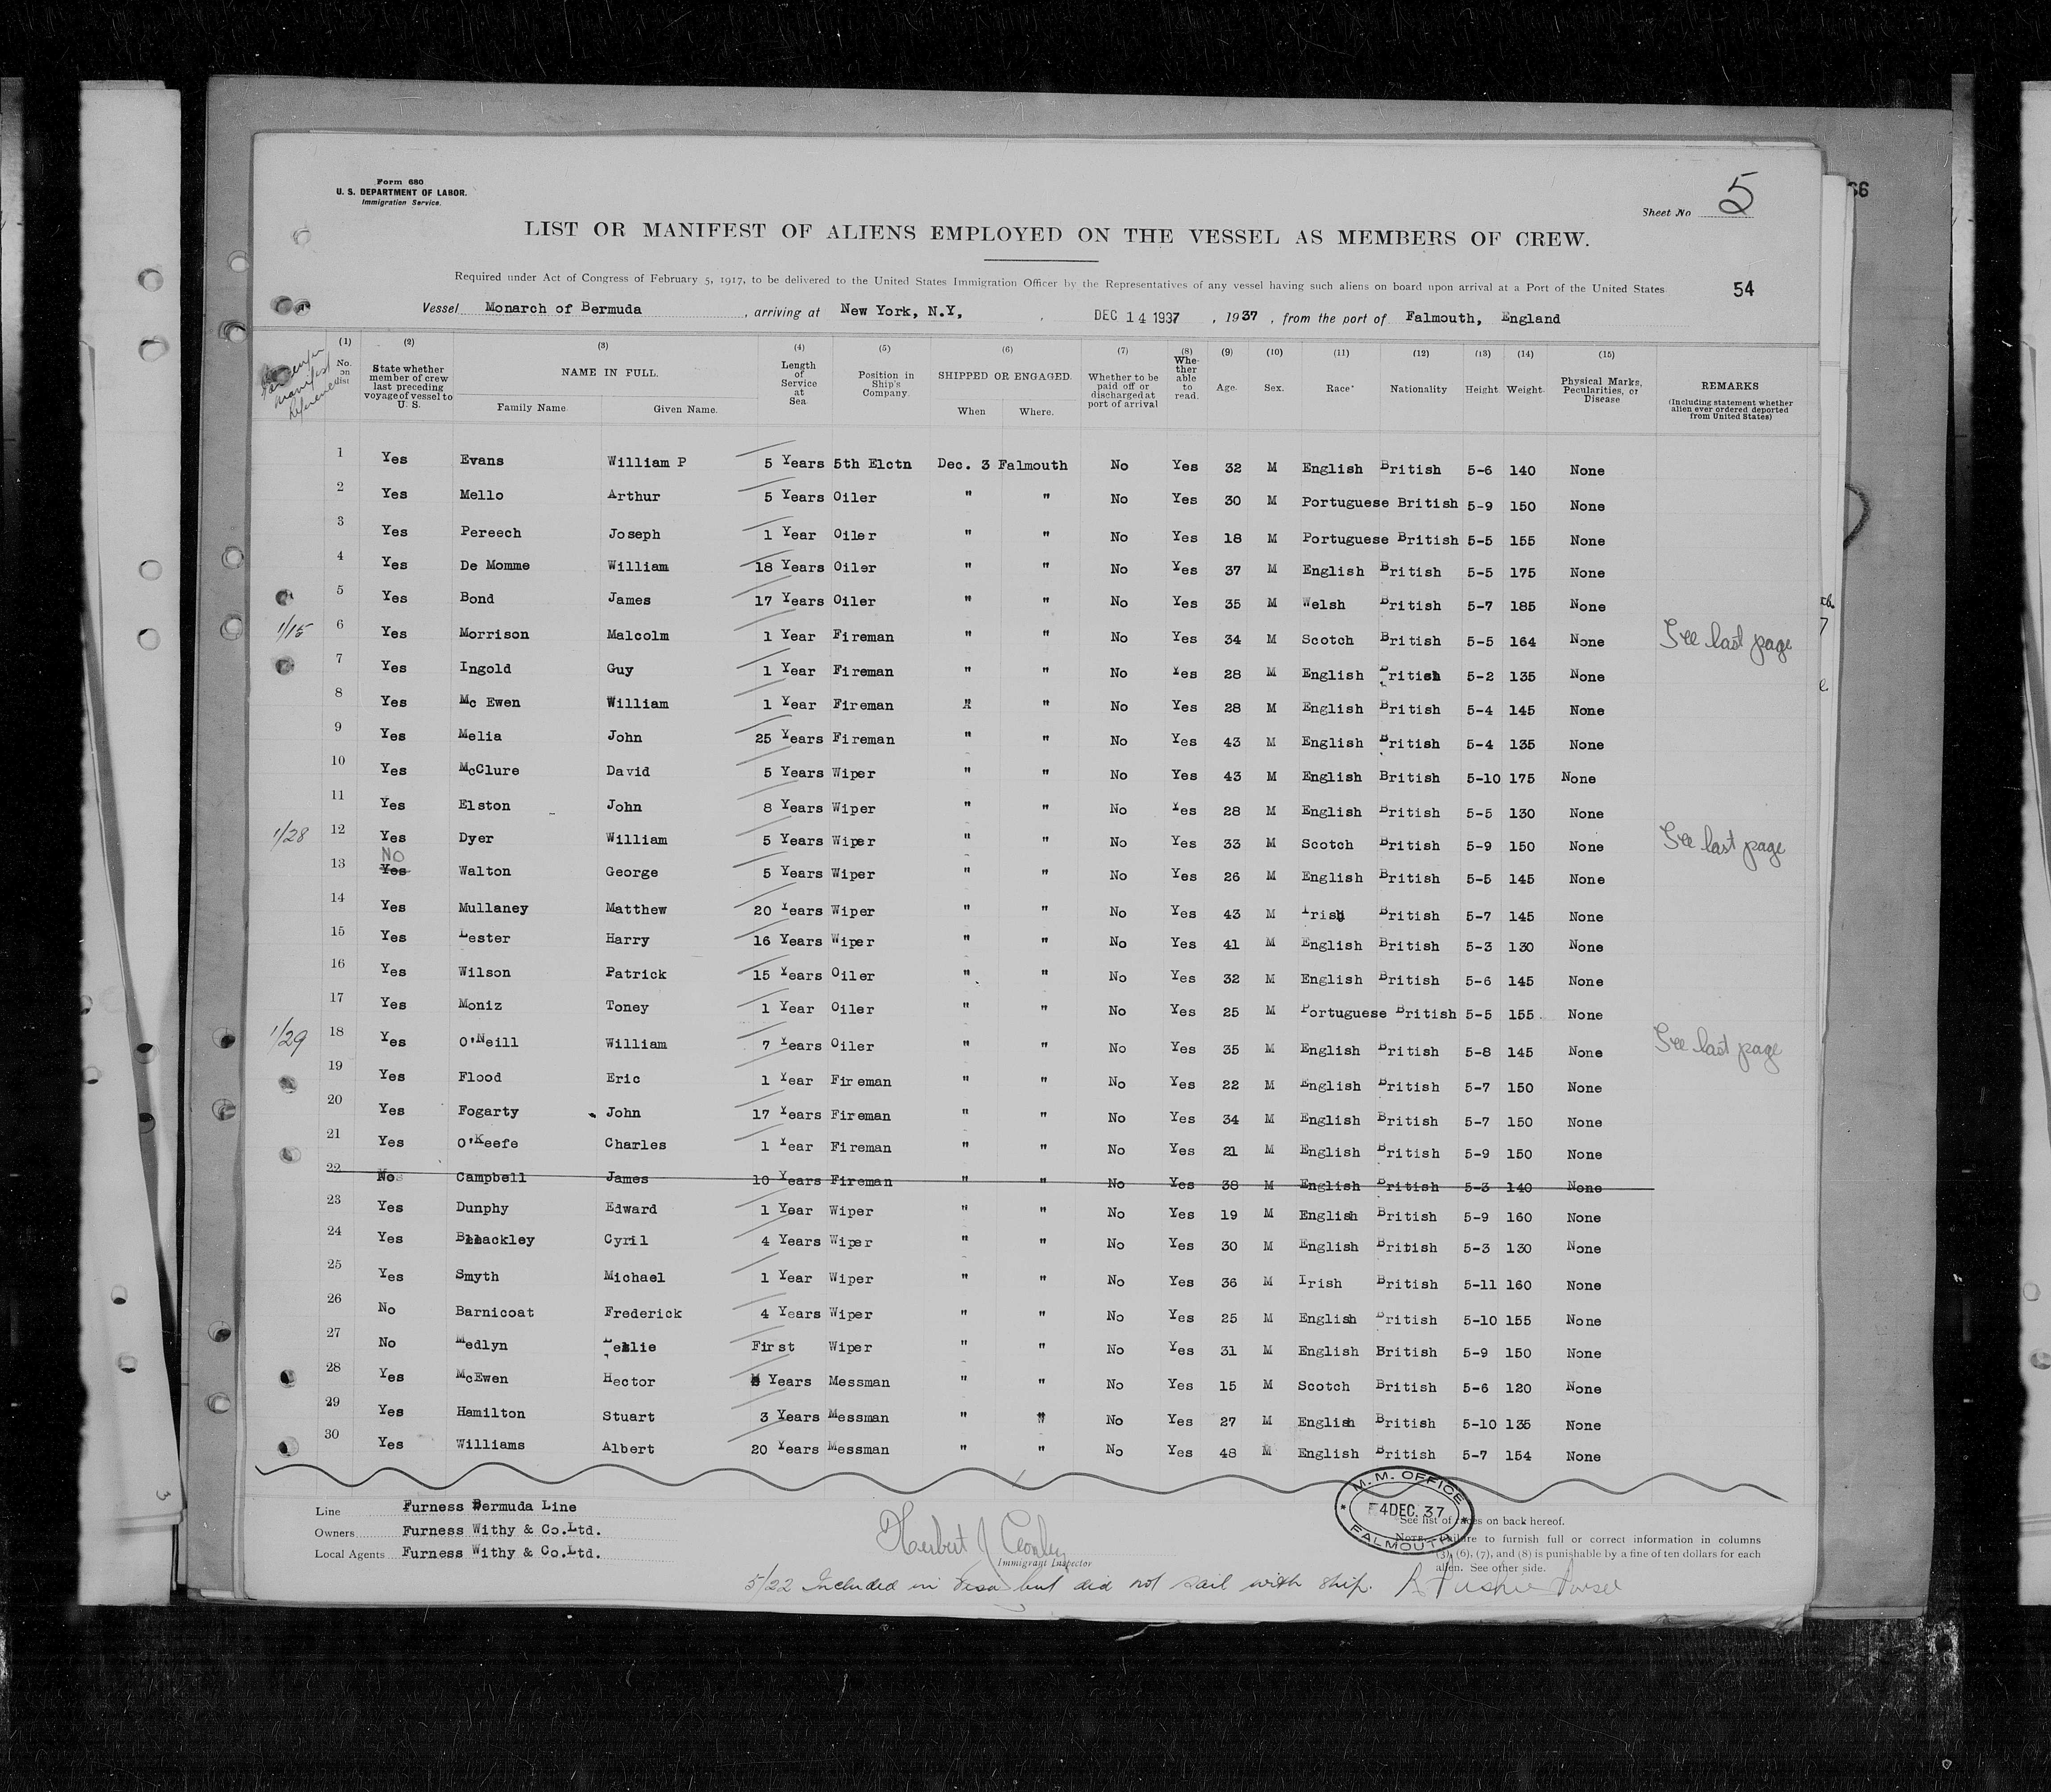 Form 680
U. S. DEPARTMENT OF LABOR.
Immigration Service.
Sheet No 5
66
LIST OR MANIFEST OF ALIENS EMPLOYED ON THE VESSEL AS MEMBERS OF CREW.
Required under Act of Congress of February 5, 1917, to be delivered to the United States Immigration Officer by the Representatives of any vessel having such aliens on board upon arrival at a Port of the United States
54
Vessel Monarch of Bermuda, arriving at New York, N.Y, DEC 14 1937, 1937, from the port of Falmouth, England
manifest Reference
(1) No. on list
(2) State whether member of crew last preceding voyage of vessel to U. S.
(3) NAME IN FULL. Family Name. Given Name.
(4) Length of Service at Sea
(5) Position in Ship's Company.
(6) SHIPPED OR ENGAGED. When Where.
(7) Whether to be paid off or discharged at port of arrival
(8) Whether able to read.
(9) Age.
(10) Sex.
(11) Race*
(12) Nationality
(13) Height
(14) Weight.
(15) Physical Marks, Pecularities, or Disease
REMARKS (Including statement whether alien ever ordered deported from United States)
1 Yes Evans William P 5 Years 5th Elctn Dec. 3 Falmouth No Yes 32 M English British 5-6 140 None
2 Yes Mello Arthur 5 Years Oiler " " No Yes 30 M Portuguese British 5-9 150 None
3 Yes Pereech Joseph 1 Year Oiler " " No Yes 18 M Portuguese British 5-5 155 None
4 Yes De Momme William 18 Years Oiler " " No Yes 37 M English British 5-5 175 None
5 Yes Bond James 17 Years Oiler " " No Yes 35 M Welsh British 5-7 185 None
1/15 6 Yes Morrison Malcolm 1 Year Fireman " " No Yes 34 M Scotch British 5-5 164 None See last page
7 Yes Ingold Guy 1 Year Fireman " " No Yes 28 M English British 5-2 135 None
8 Yes Mc Ewen William 1 Year Fireman " " No Yes 28 M English British 5-4 145 None
9 Yes Melia John 25 Years Fireman " " No Yes 43 M English British 5-4 135 None
10 Yes McClure David 5 Years Wiper " " No Yes 43 M English British 5-10 175 None
11 Yes Elston John 8 Years Wiper " " No Yes 28 M English British 5-5 130 None
1/28 12 Yes Dyer William 5 Years Wiper " " No Yes 33 M Scotch British 5-9 150 None See last page
NO
13 Yes Walton George 5 Years Wiper " " No Yes 26 M English British 5-5 145 None
14 Yes Mullaney Matthew 20 Years Wiper " " No Yes 43 M Irish British 5-7 145 None
15 Yes Lester Harry 16 Years Wiper " " No Yes 41 M English British 5-3 130 None
16 Yes Wilson Patrick 15 Years Oiler " " No Yes 32 M English British 5-6 145 None
17 Yes Moniz Toney 1 Year Oiler " " No Yes 25 M Portuguese British 5-5 155 None
1/29 18 Yes O'Neill William 7 Years Oiler " " No Yes 35 M English British 5-8 145 None See last page
19 Yes Flood Eric 1 Year Fireman " " No Yes 22 M English British 5-7 150 None
20 Yes Fogarty John 17 Years Fireman " " No Yes 34 M English British 5-7 150 None
21 Yes O'Keefe Charles 1 Year Fireman " " No Yes 21 M English British 5-9 150 None
22 No Campbell James 10 Years Fireman " " No Yes 38 M English British 5-3 140 None
23 Yes Dunphy Edward 1 Year Wiper " " No Yes 19 M English British 5-9 160 None
24 Yes Blackley Cyril 4 Years Wiper " " No Yes 30 M English British 5-3 130 None
25 Yes Smyth Michael 1 Year Wiper " " No Yes 36 M Irish British 5-11 160 None
26 No Barnicoat Frederick 4 Years Wiper " " No Yes 25 M English British 5-10 155 None
27 No Medlyn Leslie First Wiper " " No Yes 31 M English British 5-9 150 None
28 Yes McEwen Hector Years Messman " " No Yes 15 M Scotch British 5-6 120 None
29 Yes Hamilton Stuart 3 Years Messman " " No Yes 27 M English British 5-10 135 None
30 Yes Williams Albert 20 Years Messman " " No Yes 48 M English British 5-7 154 None
Line Furness Bermuda Line
Owners Furness Withy & Co.Ltd.
Local Agents Furness Withy & Co.Ltd.
Herbert J
Immigrant Inspector
M. M. OFFICE
4DEC. 37
FALMOUTH
See list of races on back hereof.
NOTE.—Failure to furnish full or correct information in columns (3), (6), (7), and (8) is punishable by a fine of ten dollars for each alien. See other side.
5/22 Included in visa but did not sail with ship.
3